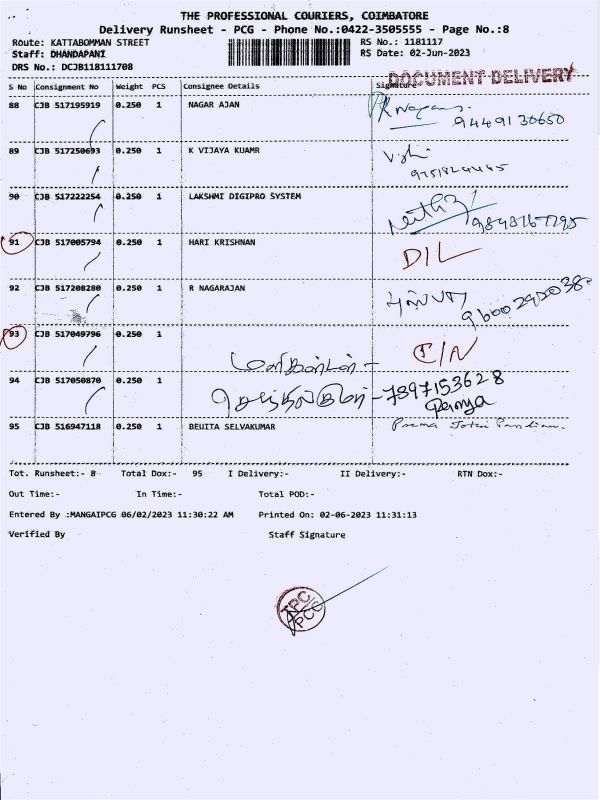 THE PROFESSIONAL COURIERS, COIMBATORE
Delivery Runsheet - PCG - Phone No.:0422-3505555 - Page No.:8
Route: KATTABOMMAN STREET RS No.: 1181117
Staff: DHANDAPANI RS Date: 02-Jun-2023
DRS No.: DCJB118111708
DOCUMENT DELIVERY
S No Consignment No Weight PCS Consignee Details Signature
88 CJB 517195919 0.250 1 NAGAR AJAN
9449130650
89 CJB 517250693 0.250 1 K VIJAYA KUAMR
90 CJB 517222254 0.250 1 LAKSHMI DIGIPRO SYSTEM
91 CJB 517005794 0.250 1 HARI KRISHNAN D/L
92 CJB 517208280 0.250 1 R NAGARAJAN
93 CJB 517049796 0.250 1
94 CJB 517050870 0.250 1 7397153628
Ramya
95 CJB 516947118 0.250 1 BEUITA SELVAKUMAR
Tot. Runsheet:- 8 Total Dox:- 95 I Delivery:- II Delivery:- RTN Dox:-
Out Time:- In Time:- Total POD:-
Entered By :MANGAIPCG 06/02/2023 11:30:22 AM Printed On: 02-06-2023 11:31:13
Verified By Staff Signature